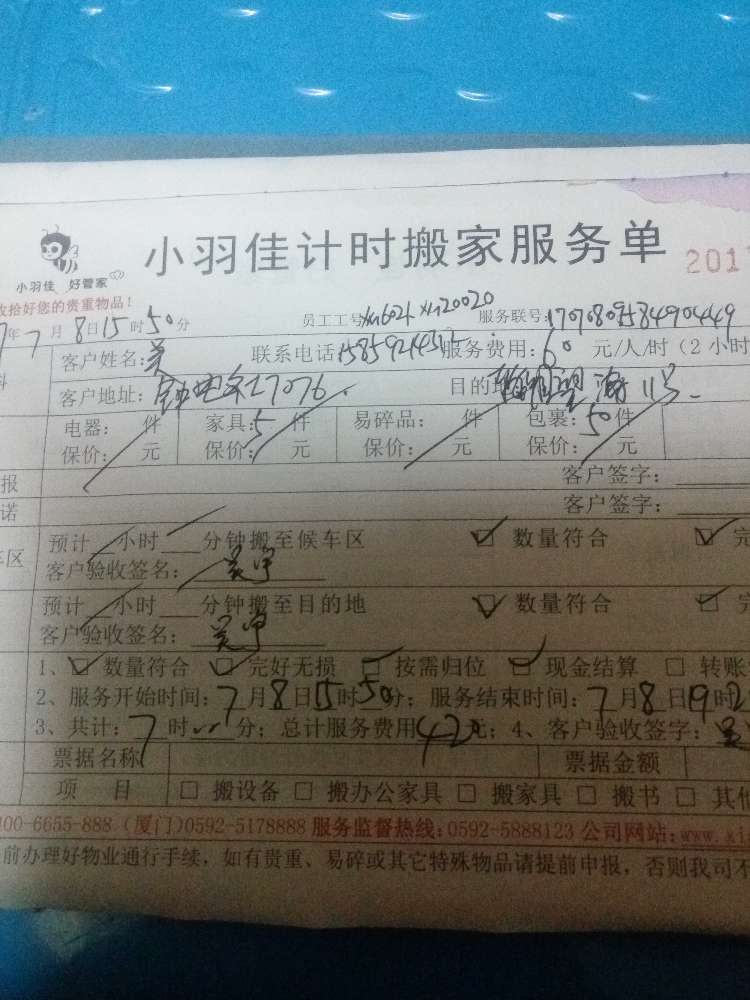 小羽佳计时搬家服务单
小羽佳 好管家
201
收拾好您的贵重物品!
年7月8日15时50分 员工工号 xm6021 xm20020 服务联号:1707080958490449
客户姓名:吴 联系电话 服务费用:60 元/人/时(2小时
客户地址: 17076. 目的 望海11号.
电器: 件 家具:5件 易碎品: 件 包裹:50件
保价: 元 保价: 元 保价: 元 保价: 元
报 客户签字:
诺 客户签字:
预计 小时 分钟搬至候车区 ☑ 数量符合 ☑ 完
车区 客户验收签名:吴宇
预计 小时 分钟搬至目的地 ☑ 数量符合 ☑ 完
客户验收签名:吴宇
1、☑ 数量符合 ☑ 完好无损 ☑ 按需归位 ☑ 现金结算 □ 转账
2、服务开始时间:7月8日15时50分;服务结束时间:7月8日19时
3、共计:7时 分;总计服务费用420元;4、客户验收签字:吴
票据名称 票据金额
项 目 □ 搬设备 □ 搬办公家具 □ 搬家具 □ 搬书 □ 其他
00-6655-888 (厦门)0592-5178888 服务监督热线:0592-5888123 公司网站:www.
前办理好物业通行手续,如有贵重、易碎或其它特殊物品请提前申报,否则我司不